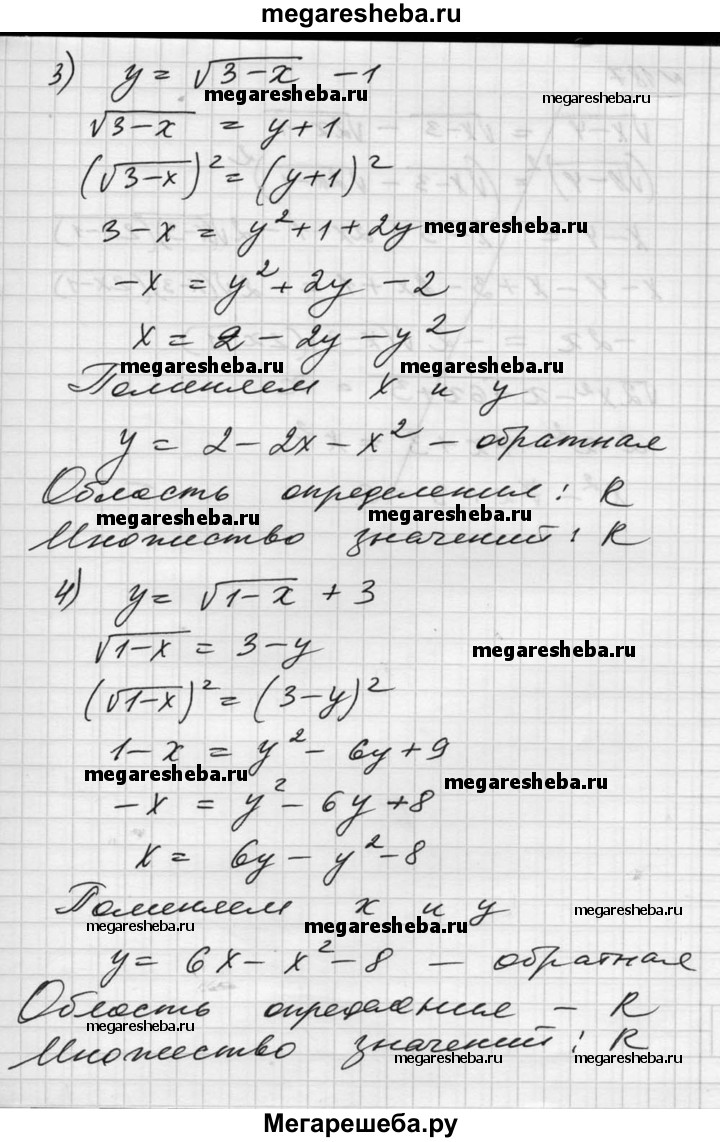 megaresheba.ru
3) y = √3-x - 1
megaresheba.ru megaresheba.ru
√3-x = y+1
(√3-x)² = (y+1)²
3-x = y²+1+2y
megaresheba.ru
-x = y²+2y-2
x = 2-2y-y²
megaresheba.ru megaresheba.ru
Поменяем x и y
y = 2-2x-x² - обратная
Область определения: R
megaresheba.ru megaresheba.ru
Множество значений: R
4) y = √1-x + 3
√1-x = 3-y
megaresheba.ru
(√1-x)² = (3-y)²
1-x = y²-6y+9
megaresheba.ru megaresheba.ru
-x = y²-6y+8
x = 6y-y²-8
Поменяем x и y
megaresheba.ru megaresheba.ru megaresheba.ru
y = 6x-x²-8 - обратная
Область определения - R
megaresheba.ru
Множество значений: R
megaresheba.ru megaresheba.ru
Мегарешеба.ру